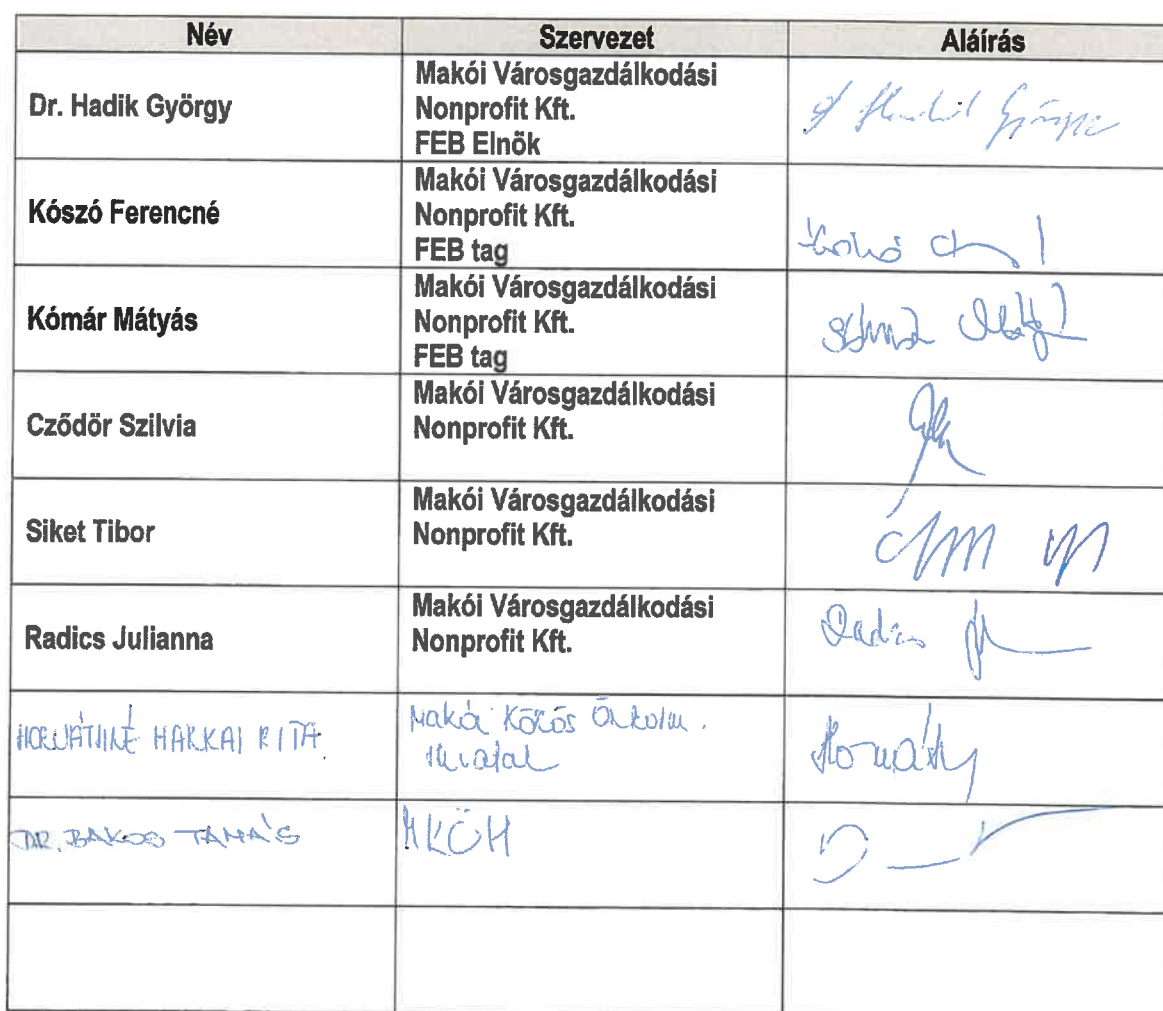 Név Szervezet Aláírás
Dr. Hadik György
Makói Városgazdálkodási
Nonprofit Kft.
FEB Elnök
Kószó Ferencné
Makói Városgazdálkodási
Nonprofit Kft.
FEB tag
Kómár Mátyás
Makói Városgazdálkodási
Nonprofit Kft.
FEB tag
Cződör Szilvia
Makói Városgazdálkodási
Nonprofit Kft.
Siket Tibor
Makói Városgazdálkodási
Nonprofit Kft.
Radics Julianna
Makói Városgazdálkodási
Nonprofit Kft.
Radics
HORVÁTHNÉ HARKAI RITA
Makói Közös Önkorm.
Hivatal
Horváth
DR. BAKOS TAMÁS
MKÖH